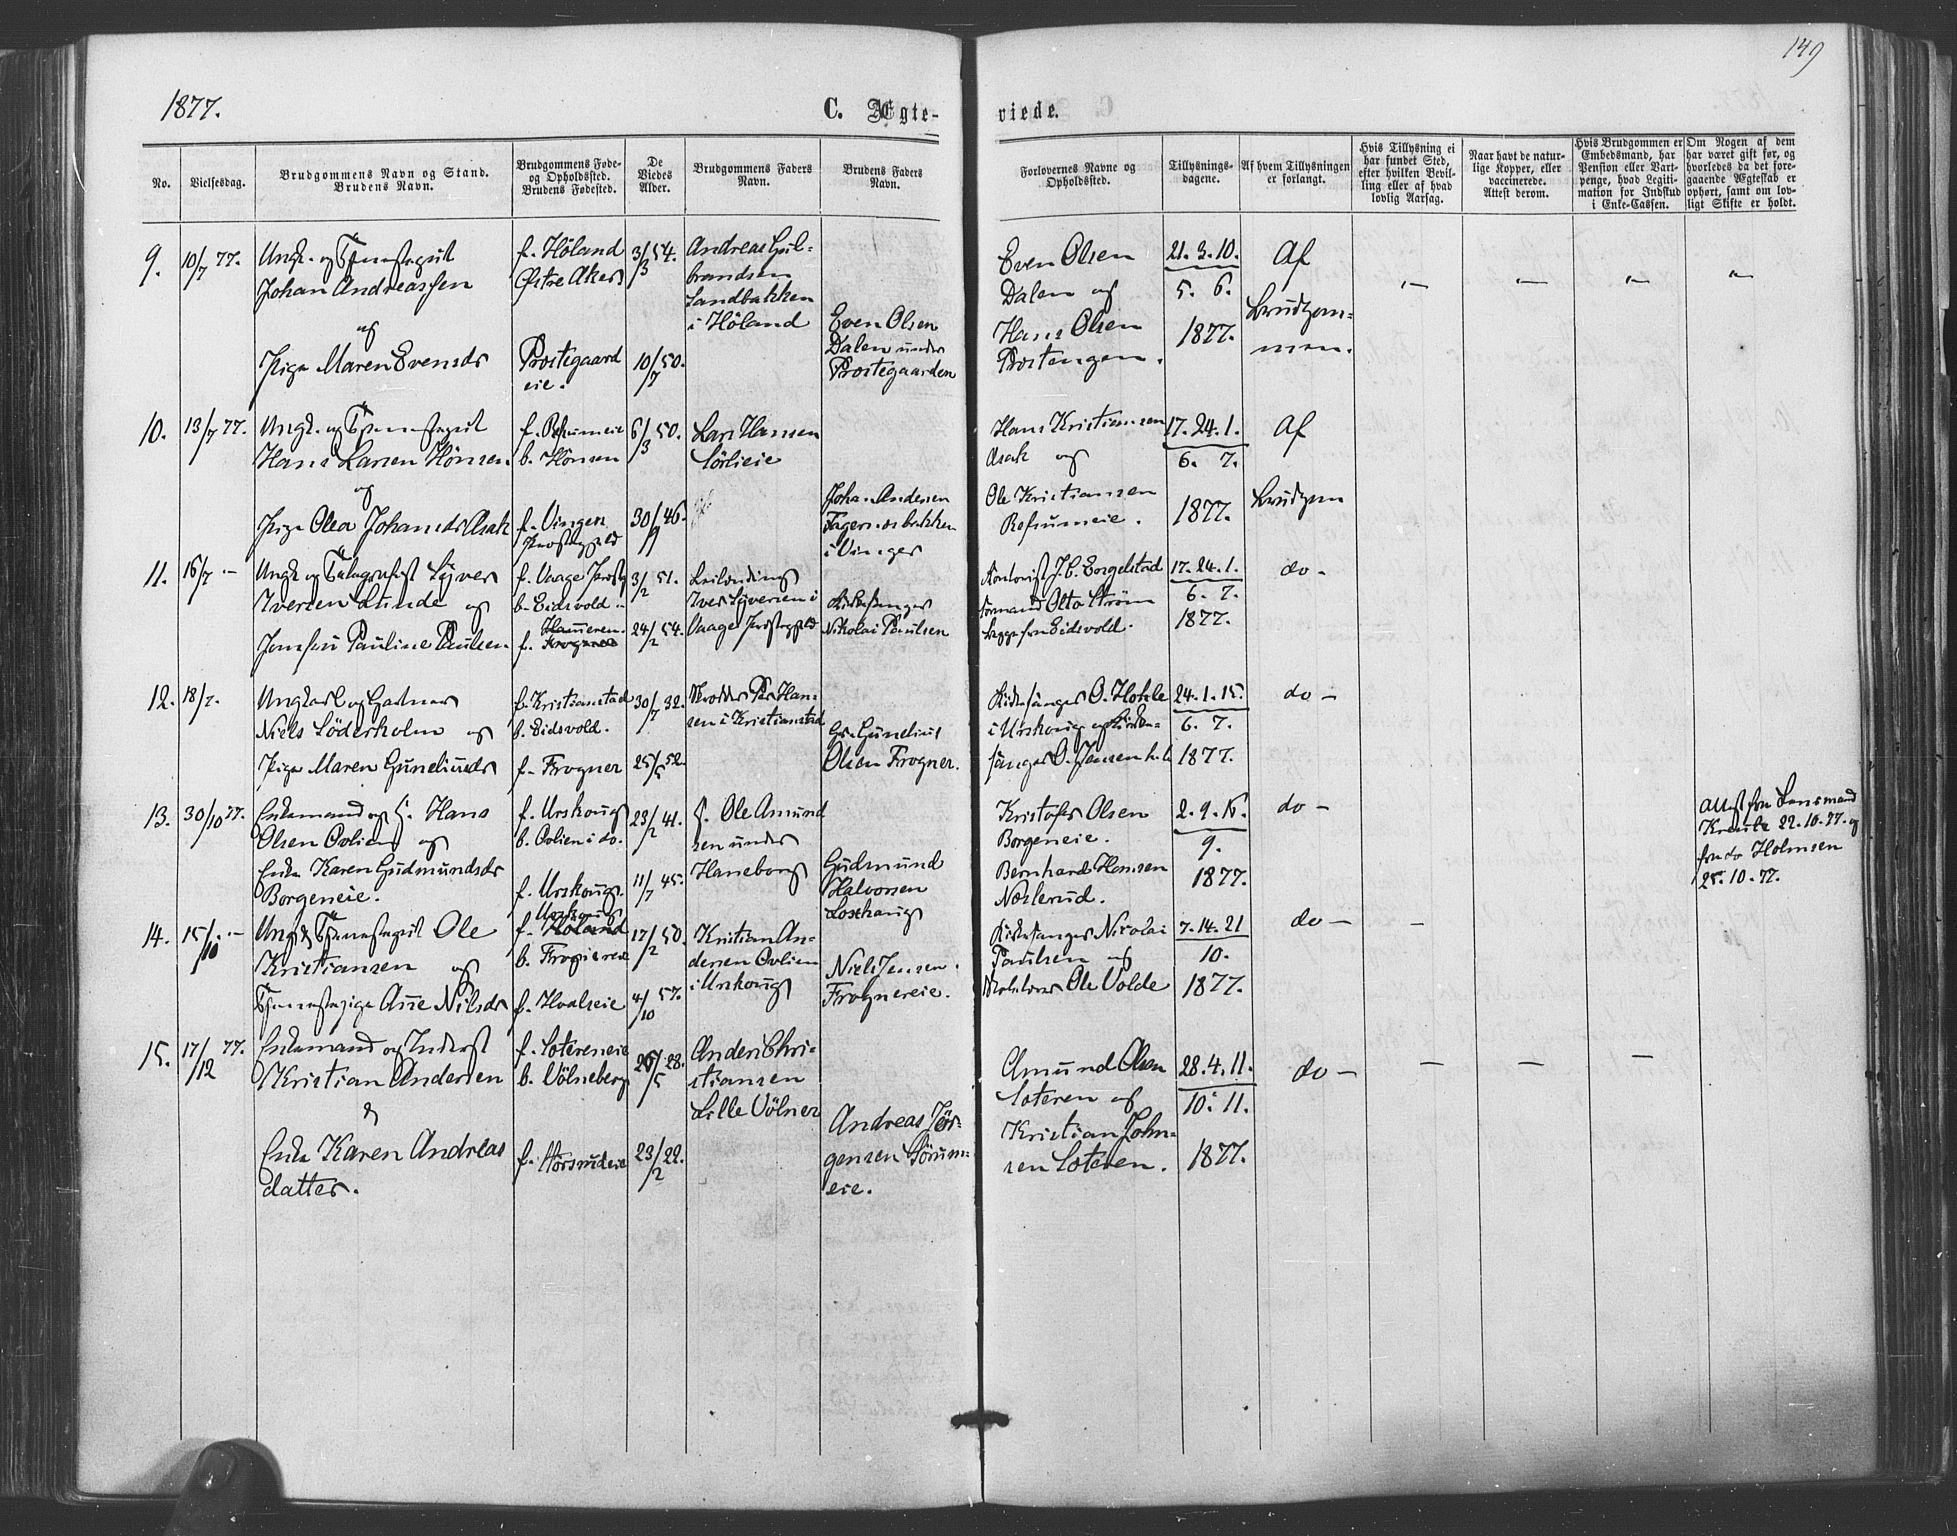 149
1877.
C. Ægte-
viede.
No.
Vielsesdag.
Brudgommens Navn og Stand.
Brudens Navn.
Brudgommens Føde-
og Opholdssted.
Brudens Fødested.
De
Viedes
Alder.
Brudgommens Faders
Navn.
Brudens Faders
Navn.
Forlovernes Navne og
Opholdssted.
Tillysnings-
dagene.
Af hvem Tillysningen
er forlangt.
Hvis Tillysning ei
har fundet Sted,
efter hvilken Bevil-
ling eller af hvad
lovlig Aarsag.
Naar havt de natur-
lige Kopper, eller
vaccinerede.
Attest derom.
Hvis Brudgommen er
Embedsmand, har
Pension eller Vart-
penge, hvad Legiti-
mation for Indskud
i Enke-Cassen.
Om Nogen af dem
har været gift før, og
hvorledes da det fore-
gaaende Ægteskab er
ophørt, samt om lov-
ligt Skifte er holdt.
9.
10/7 77.
Ungk. og Tjenestegut
Johan Andreassen
og
Pige Maren Evensdr
f. Høland
Østre Aker
Prostegaard
eie.
3/3 54.
10/7 50.
Andreas Gul-
brandsen
Sandbakken
i Høland
Even Olsen
Dalen under
Prostegaarden
Even Olsen
Dalen og
Hans Olsen
Prostengen.
21. 3. 10.
5. 6.
1877.
Af
Brudgom-
men.
10.
13/7 77.
Ungk. og Tjenestegut
Hans Larsen Hønsen
og
Pige Olea Johansdr Asak
f. Refsumeie
b. Hønsen
f. Vinger
Prestegjeld
6/3 50.
30/9 46.
Lars Hansen
Sörlieie
Johan Andersen
Fagernesbakken
i Vinger
Hans Kristiansen
Asak og
Ole Kristiansen
Refsumeie.
17. 24. 1.
6. 7.
1877.
Af
Brudgom
11.
16/7 -
Ungk og Telegrafist Syver
Iversen Lunde og
Jomfru Pauline Paulsen
f. Vaage Prestg
b. Eidsvold
Hameren
f. Frogner
3/2 51.
24/2 54.
Leilænding
Iver Syversen i
Vaage Prestegjeld
Kirkesanger
Nikolai Paulsen
Kontorist J. C. Engelstad
Formand Otto Strøm
begge fra Eidsvold.
17. 24. 1.
6. 7.
1877.
do -
12.
18/7.
Ungkarl og Gartner
Niels Söderholm og
Pige Maren Guneliusdr
f. Kristianstad
b. Eidsvold.
f. Frogner
30/7 32.
25/5 52.
Per Han-
sen i Kristianstad
Gunelius
Olsen Frogner.
Kirkesanger O. Hokle
i Urskoug og Kirke-
sanger O. Jensen h. b
24. 1. 15.
6. 7.
1877.
do -
13.
30/10 77.
Enkemand og Hans
Olsen Ovlien og
Enke Karen Gudmundsdr
Borgeneie.
f. Urskoug
b. Ovlien i do.
f. Urskoug.
23/2 41.
11/7 45.
Ole Amund
sen under
Haneborg
Gudmund
Halvorsen
Loshaug
Kristofer Olsen
Borgeneie.
Bernhard Hansen
Næslerud.
2. 9. 16.
9.
1877.
do -
Attest fra Lensmand
Kraule 22.10.77. og
fra do Holmsen
25. 10. 77.
14.
15/10 -
Ungk Tjenestegut Ole
Kristiansen og
Tjenestepige Ane Nilsdr
Urskoug
f. Høland
b. Frognereie
f. Hvalseie
17/2 50.
4/10 57.
Kristian An-
dersen Ovlien
i Urskoug
Niels Jensen
Frognereie.
Kirkesanger Nicolai
Paulsen og
Ole Volde
7. 14. 21
10.
1877.
do -
15.
17/12 77.
Enkemand og Inderst
Kristian Andersen
&
Enke Karen Andreas
datter.
f. Lotereneie
b. Völneberg
f. Hörsrudeie
26/5 28.
23/2 22.
Anders Chri-
stiansen
Lille Völner
Andreas Jör-
gensen Sörum-
eie.
Amund Olsen
Loteren og
Kristian John-
sen Loteren.
28. 4. 11.
10. 11.
1877.
do -